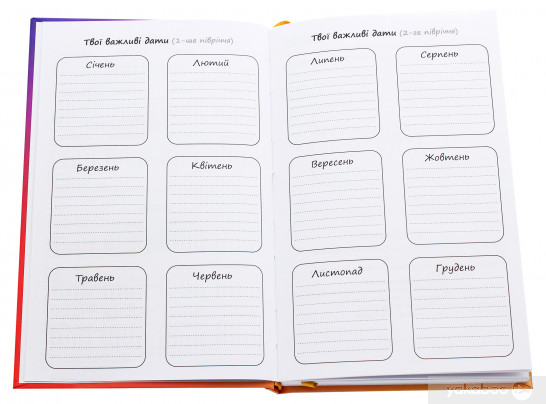 Твої важливі дати (1-ше півріччя)
Січень
Лютий
Березень
Квітень
Травень
Червень
Твої важливі дати (2-ге півріччя)
Липень
Серпень
Вересень
Жовтень
Листопад
Грудень
yakaboo